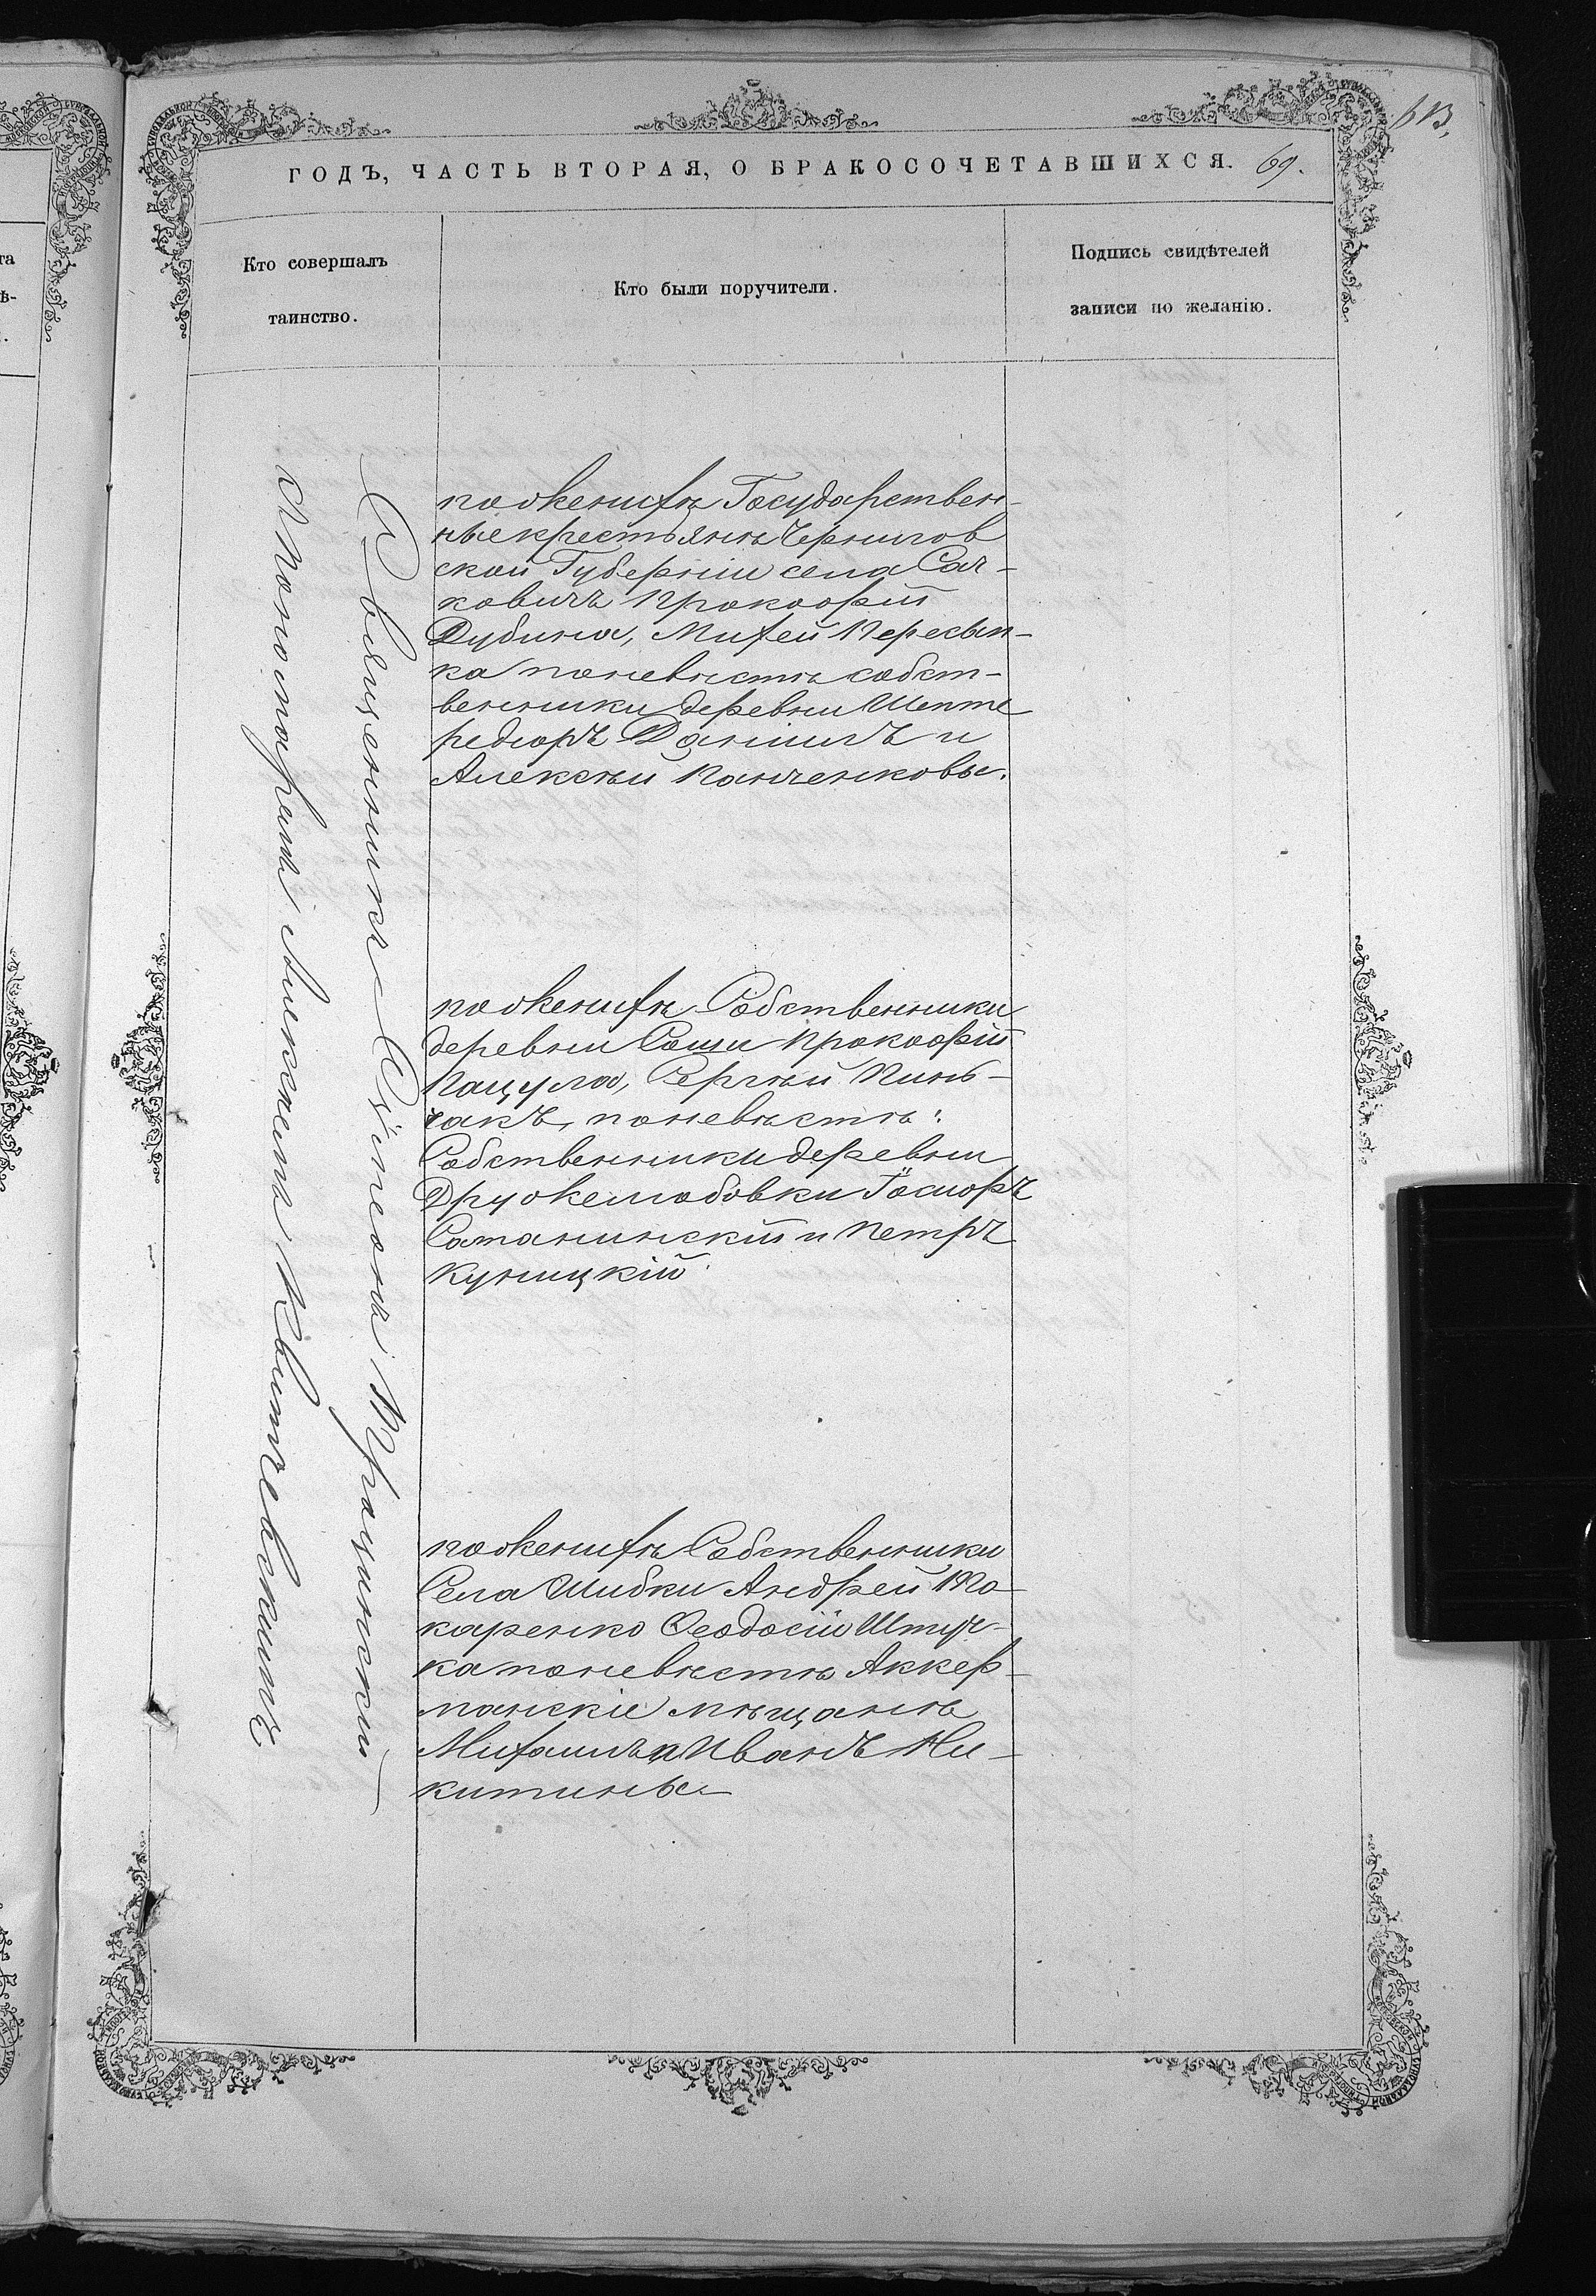 ГОДЪ, ЧАСТЬ ВТОРАЯ, О БРАКОСОЧЕТАВШИХСЯ. 69.
Кто совершалъ
таинство.
Кто были поручители.
Подпись свидѣтелей
записи по желанію.
Священникъ Стефанъ
Псаломщикъ Алексѣй
по женихѣ Государствен-
ные крестьянѣ Чернигов
ской Губерніи села Сач-
ковичъ Прокофій
Дубина, Михей Пересып-
ка по невѣстѣ собст-
венники деревни Шепте
редюръ Даніилъ и
Алексѣй Панченковы.
по женихѣ Собственники
деревни Соши Прокофій
Пацула, Сергѣй Пинь-
чакъ, по невѣстѣ:
Собственники деревни
Дружелюбовки Госиоръ
Сатанинскій и Петръ
Куницкій
по женихѣ Собственники
Села Шибки Андрей То-
каренко Феодосій Штуч-
ка по невѣстѣ Аккер-
манскіе мѣщанѣ
Михаилъ и Иванъ Ни-
китины